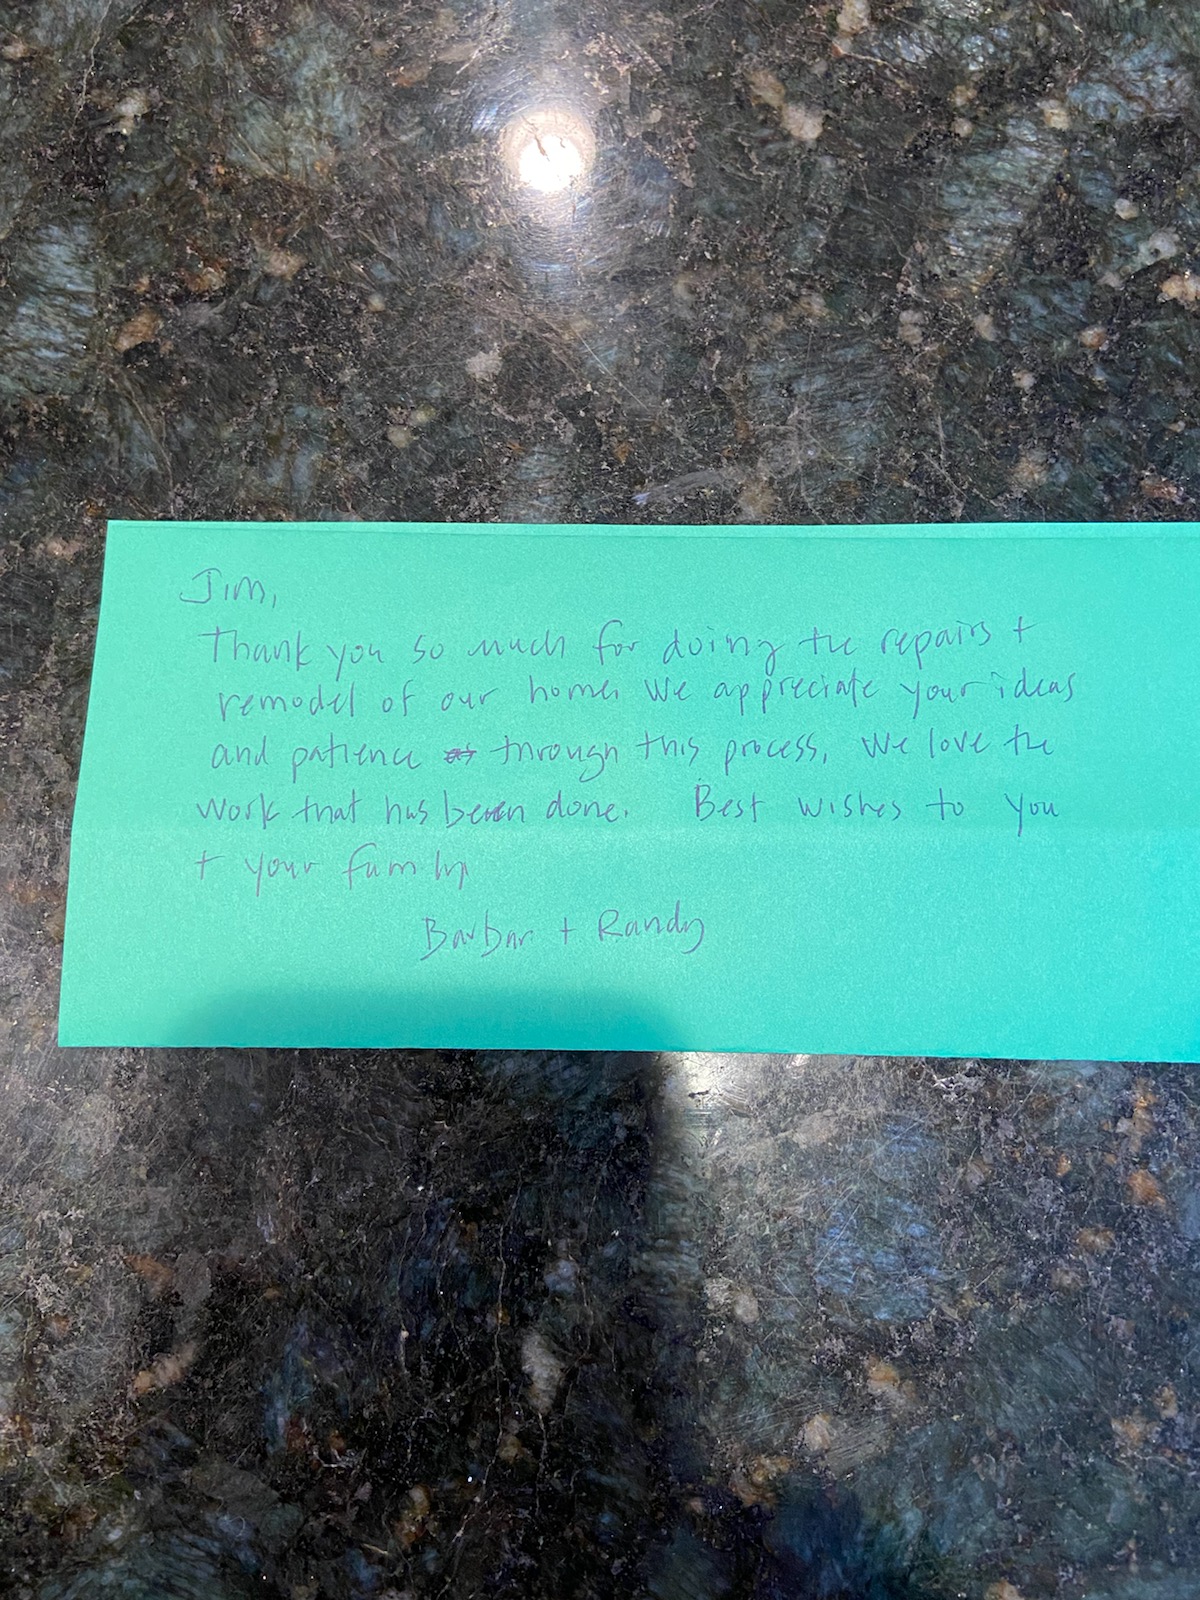 Jim,
Thank you so much for doing the repairs +
remodel of our home. We appreciate your ideas
and patience through this process. We love the
work that has been done. Best wishes to you
+ your family
Barbar + Randy